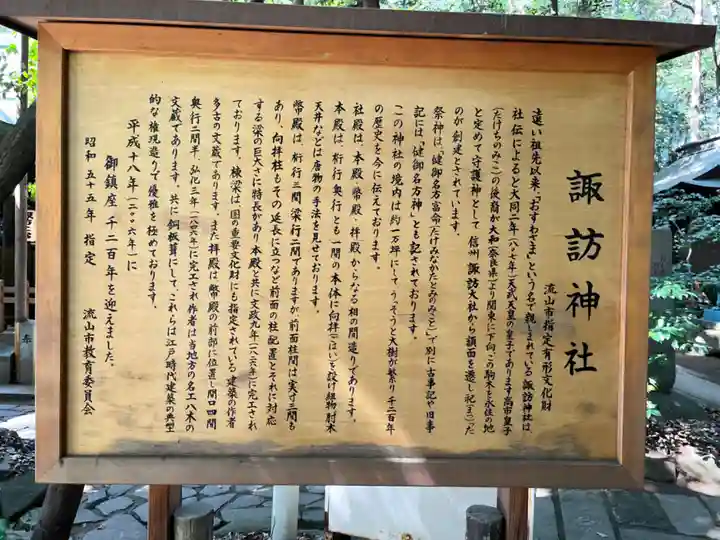 諏訪神社
流山市指定有形文化財
遠い祖先以来、「おすわさま」という名で親しまれている諏訪神社は
社伝によると大同二年(八〇七年)天武天皇の皇子であります高市皇子
(たけちのみこ)の後裔が大和(奈良県)より関東に下向、この駒木を永住の地
と定めて守護神として信州諏訪大社から額面を遷し祀(まつ)った
のが創建とされています。
祭神は、「健御名方富命(たけみなかたとみのみこと)」で別に古事記や旧事
記には、「健御名方神」とも記されております。
この神社の境内は約一万坪にしてうっそうと大樹が繁り千二百年
の歴史を今に伝えております。
社殿は、本殿、幣殿、拝殿からなる相の間造りであります。
本殿は、桁行、奥行とも一間の本体に向拝(ごはい)を設け組物肘木
天井などは唐物の手法を見せております。
幣殿は、桁行三間、梁行二間でありますが、前面柱間は実寸三間も
あり、向拝柱もその延長に立つなど前面の柱配置とそれに対応
する梁の巨大さに特長があり本殿と共に文政九年(一八二六年)に完工され
ております。棟梁は、国の重要文化財にも指定されている建築の作者
多古の文蔵であります。また拝殿は、幣殿の前部に位置し間口四間
奥行二間半、弘化三年(一八四六年)に完工され作者は当地方の名工八木の
文蔵であります。共に銅板葺にして、これらは江戸時代建築の典型
的な権現造りで優雅を極めております。
平成十八年(二〇〇六年)に
御鎮座千二百年を迎えました。
昭和五十五年 指定 流山市教育委員会